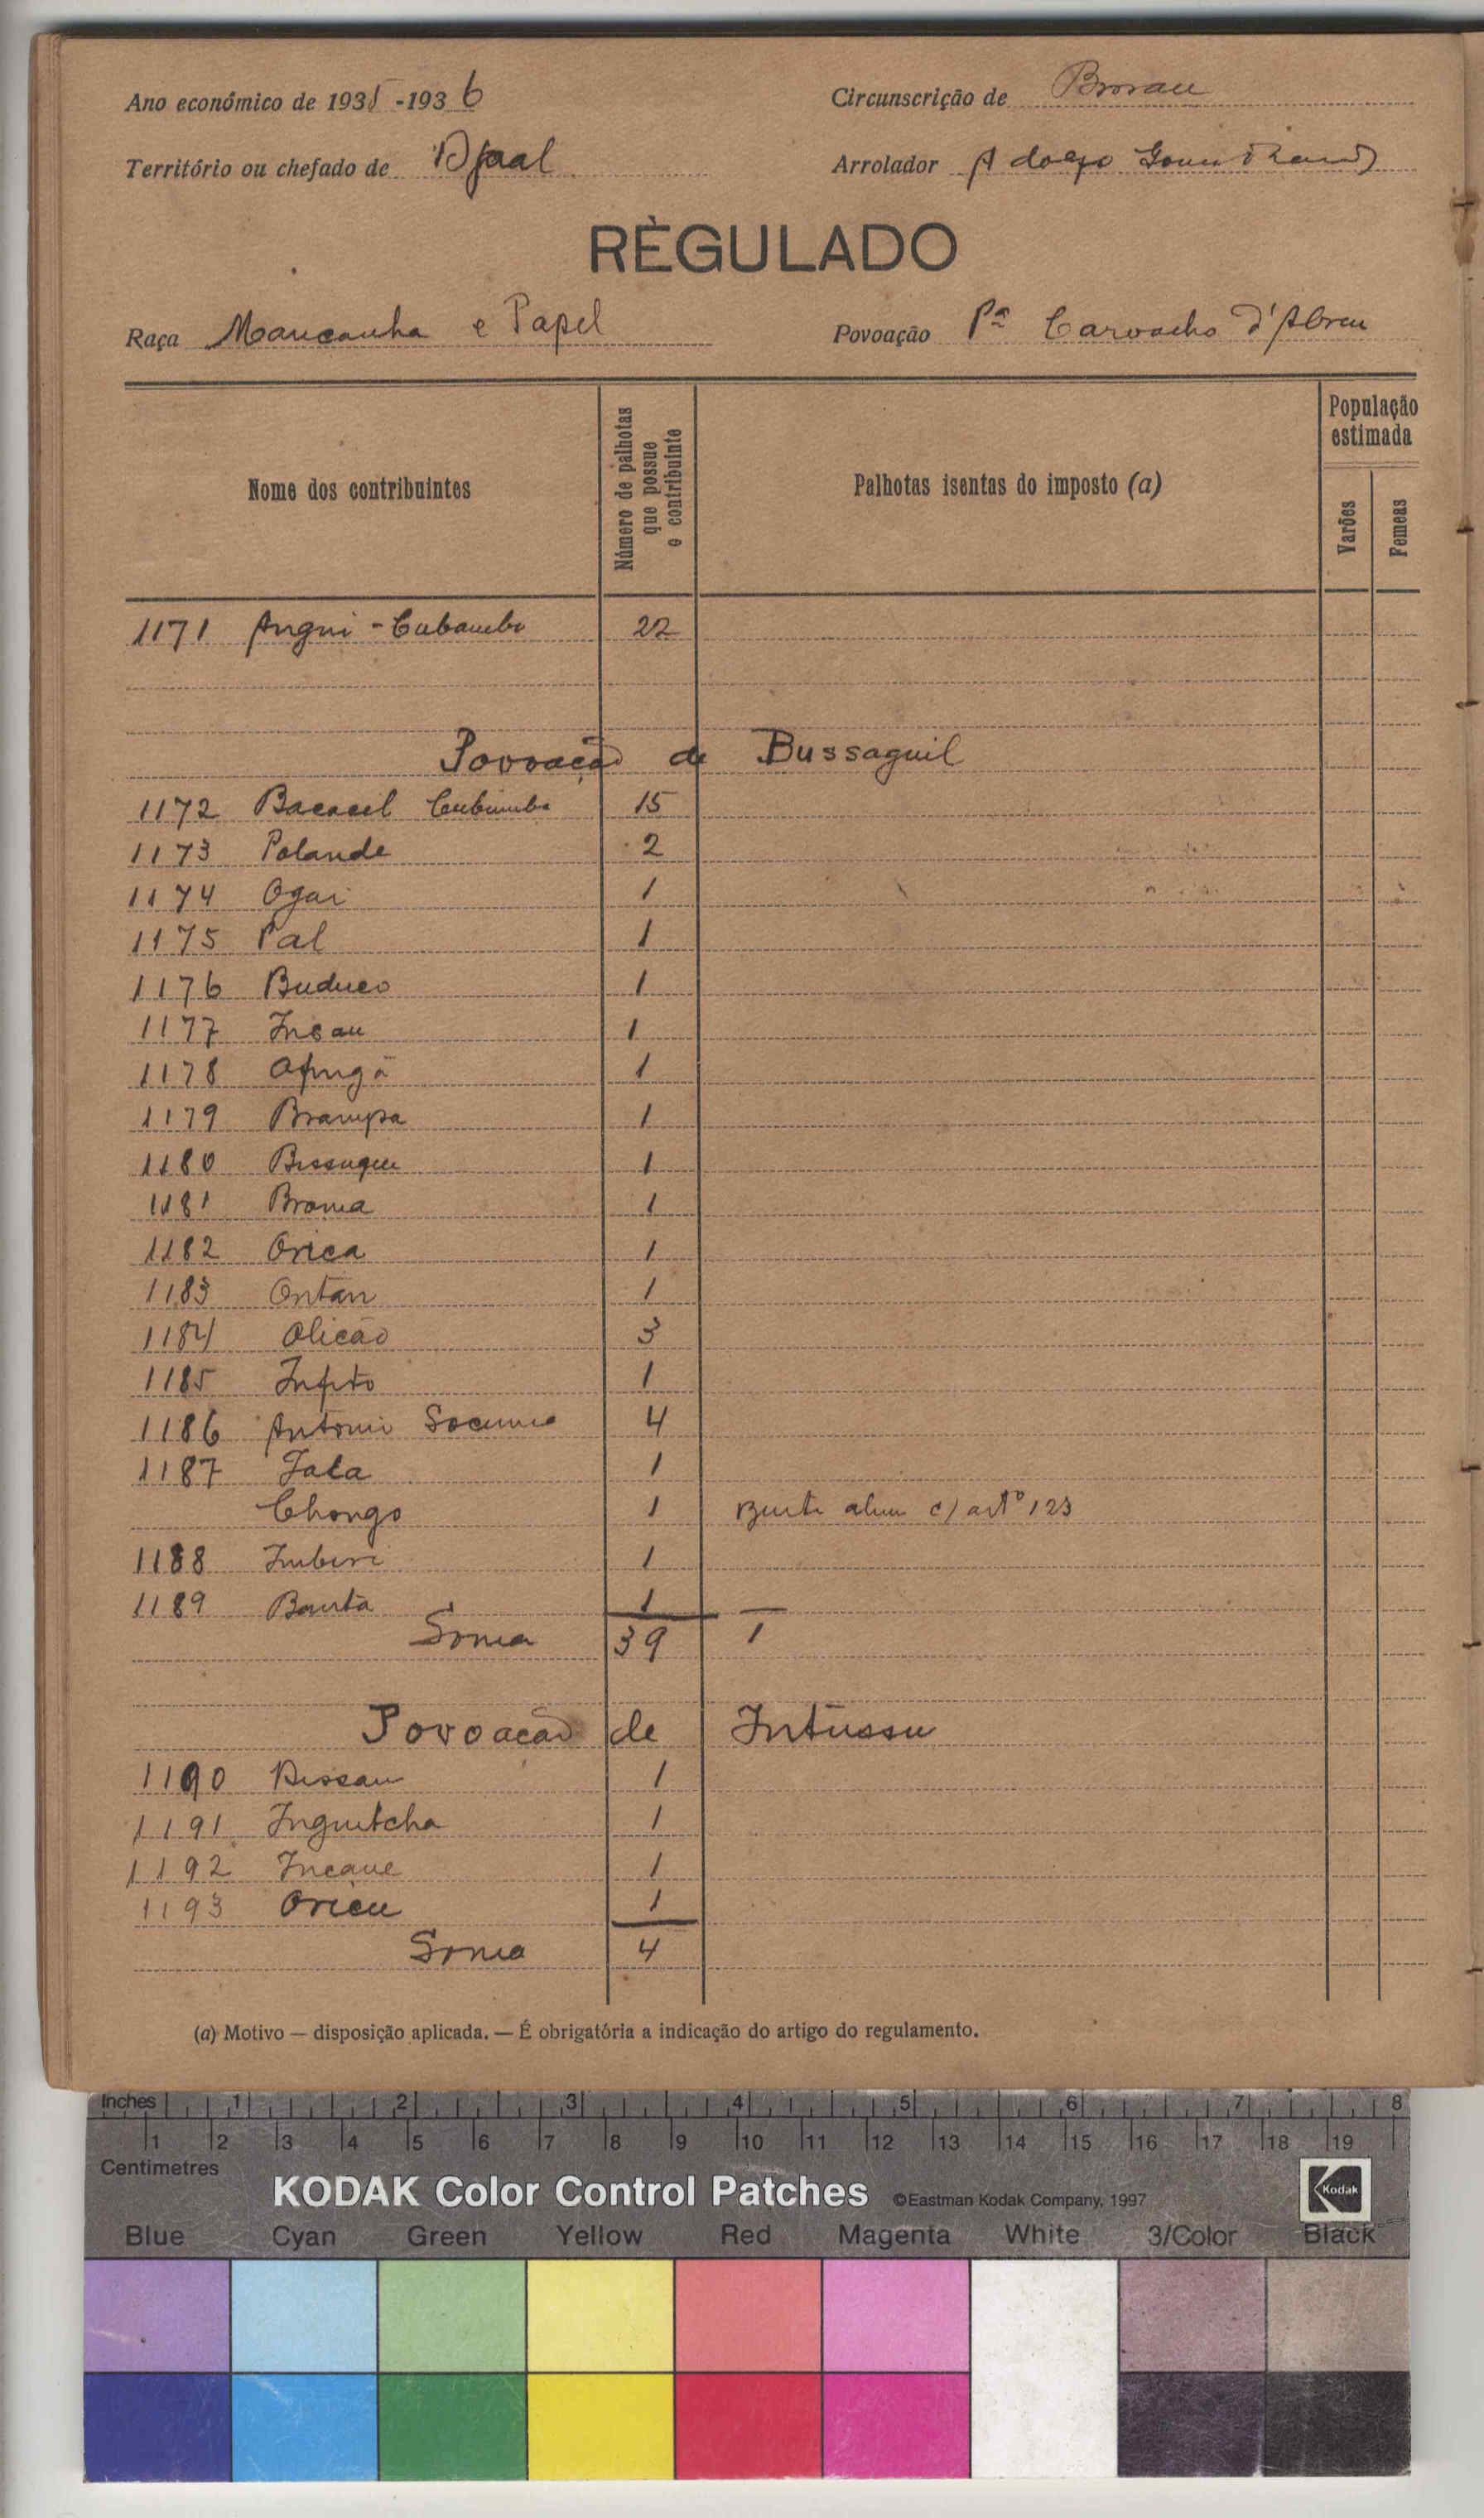 Ano económico de 1935-1936
Circunscrição de Bissau
Território ou chefado de Djaal
Arrolador Adolfo Gomes
RÈGULADO
Raça Mancanha e Papel
Povoação Pª Carvalho d'Abreu
Nome dos contribuintes
Número de palhotas que possue o contribuinte
Palhotas isentas do imposto (a)
População estimada
Varões
Femeas
1171 Angui - Cubambo 22
Povoação de Bussaguil
1172 Cubumba 15
1173 Polande 2
1174 Ogai 1
1175 Pal 1
1176 Buduco 1
1177 Incau 1
1178 1
1179 Brampa 1
1180 Bissuque 1
1181 Broma 1
1182 Orica 1
1183 Ontan 1
1184 Olicão 3
1185 1
1186 Antonio 4
1187 Jala 1
Chongo 1 c/ artº 123
1188 Imbiri 1
1189 1
Soma 39 1
Povoacão de Intussu
1190 Bissau 1
1191 Inguitcha 1
1192 Incane 1
1193 Oricu 1
Soma 4
(a) Motivo — disposição aplicada. — É obrigatória a indicação do artigo do regulamento.
Inches 1 2 3 4 5 6 7 8
1 2 3 4 5 6 7 8 9 10 11 12 13 14 15 16 17 18 19
Centimetres
KODAK Color Control Patches ©Eastman Kodak Company, 1997 Kodak
Blue Cyan Green Yellow Red Magenta White 3/Color Black